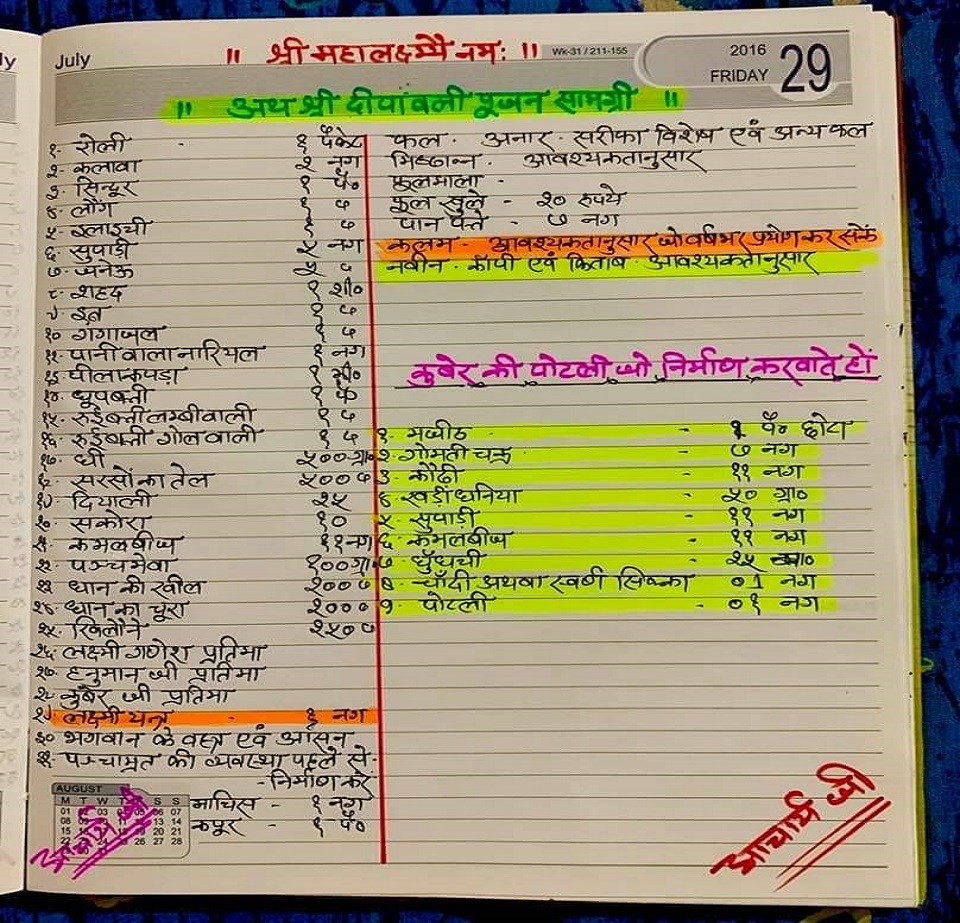 July
॥ श्री महालक्ष्म्यै नमः ॥
Wk-31 / 211-155
2016
FRIDAY
29
॥ अथ श्री दीपावली पूजन सामग्री ॥
१· रोली - १ पैकेट
२· कलावा २ नग
३· सिन्दूर १ पै०
४· लौंग १ "
५· इलाइची १ "
६· सुपाड़ी ५ नग
७· जनेऊ ५ "
८· शहद १ शी०
९· इत्र १ "
१० गंगाजल १ "
११· पानी वाला नारियल १ नग
१३· पीला कपड़ा १ मी०
१४· धूपबत्ती १ पै०
१५· रुईबत्ती लम्बी वाली १ "
१६· रुईबत्ती गोल वाली १ "
१७· घी ५०० ग्रा०
१८· सरसों का तेल ५०० "
१९· दियाली २५
२०· सकोरा १०
२१· कमलबीज ११ नग
२२· पञ्चमेवा १०० ग्रा०
२३ धान की खील २०० "
२४· धान का चूरा २००० "
२५· खिलौने २५० "
२६· लक्ष्मी गणेश प्रतिमा
२७· हनुमान जी प्रतिमा
२८ कुबेर जी प्रतिमा
२९ लक्ष्मी यन्त्र - १ नग
३० भगवान के वस्त्र एवं आसन
३१· पञ्चामृत की व्यवस्था पहले से -
- निर्माण करें
माचिस - १ नग
कपूर - १ पै०
फल · अनार · सरीफा विशेष एवं अन्य फल
मिष्ठान्न · आवश्यकतानुसार
फूलमाला -
फूल खुले - २० रुपये
पान पत्ते - ७ नग
कलम - आवश्यकतानुसार जो वर्षभर प्रयोग कर सकें
नवीन · कॉपी एवं किताब · आवश्यकतानुसार
कुबेर की पोटली जो निर्माण करवाते हों
१· मजीठ - १ पै० छोटा
२· गोमती चक्र - ७ नग
३· कौड़ी - ११ नग
४· खड़ी धनिया - ५० ग्रा०
५· सुपाड़ी - ११ नग
६· कमलबीज - ११ नग
७· घुँघची - २५
८· चाँदी अथवा स्वर्ण सिक्का - ०१ नग
९· पोटली - ०१ नग
AUGUST
M T W T F S S
01 02 03 06 07
08 09 13 14
15 19 20 21
22 26 27 28
आचार्य जी
आचार्य जी